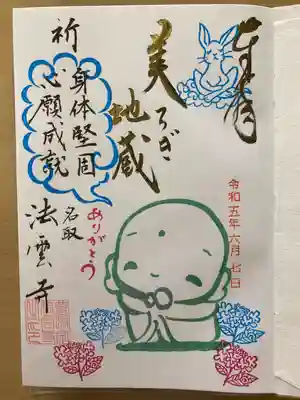 奉拝
美うぎ
地蔵
令和五年六月七日
祈
身体堅固
心願成就
ありがとう
名取
法雲寺